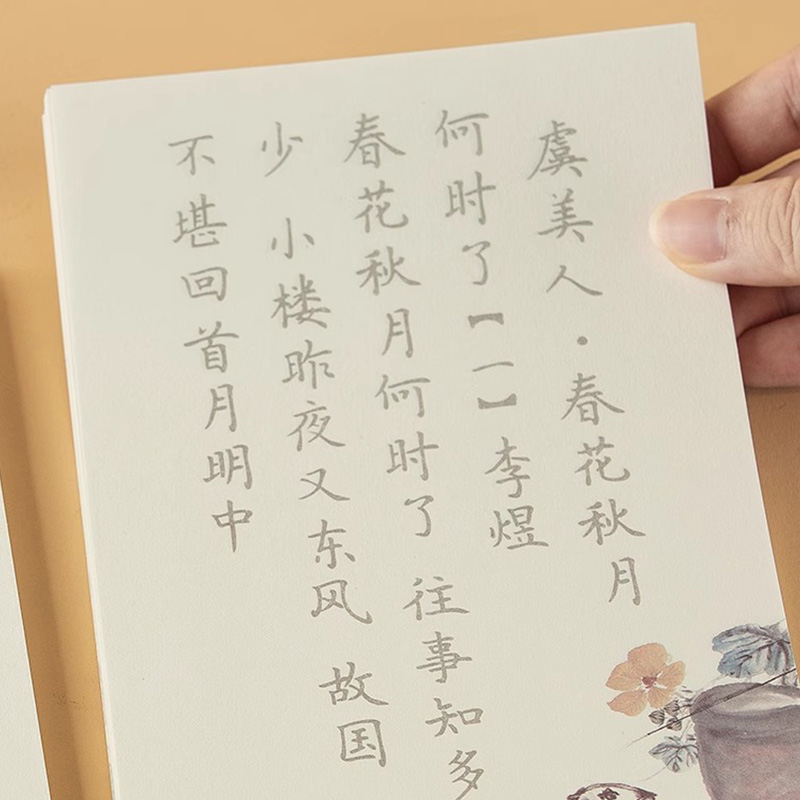 虞美人·春花秋月
何时了【一】李煜
春花秋月何时了 往事知多
少 小楼昨夜又东风 故国
不堪回首月明中